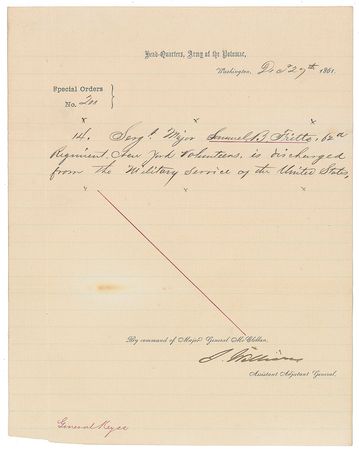 Head-Quarters, Army of the Potomac,
Washington, Dec 27th 1861.
Special Orders
No.
x x x
14. Sergt. Major Samuel B. Fritts, 62d
Regiment, New York Volunteers, is discharged
from the Military Service of the United States,
x x x
By command of Major General McClellan.
S. Williams
Assistant Adjutant General.
General Keyes